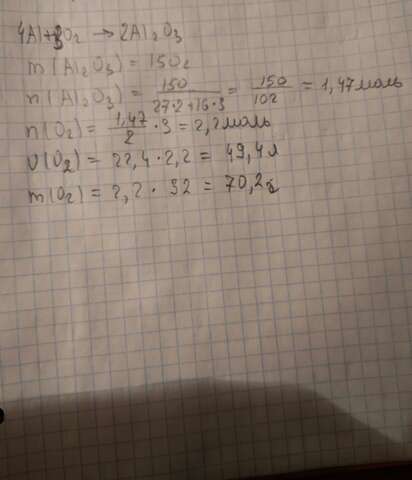 4Al+3O₂ → 2Al₂O₃
m(Al₂O₃) = 150г
n(Al₂O₃) = 150/(27·2+16·3) = 150/102 = 1,47моль
n(O₂) = 1,47/2 · 3 = 2,2моль
V(O₂) = 22,4·2,2 = 49,4л
m(O₂) = 2,2 · 32 = 70,2г